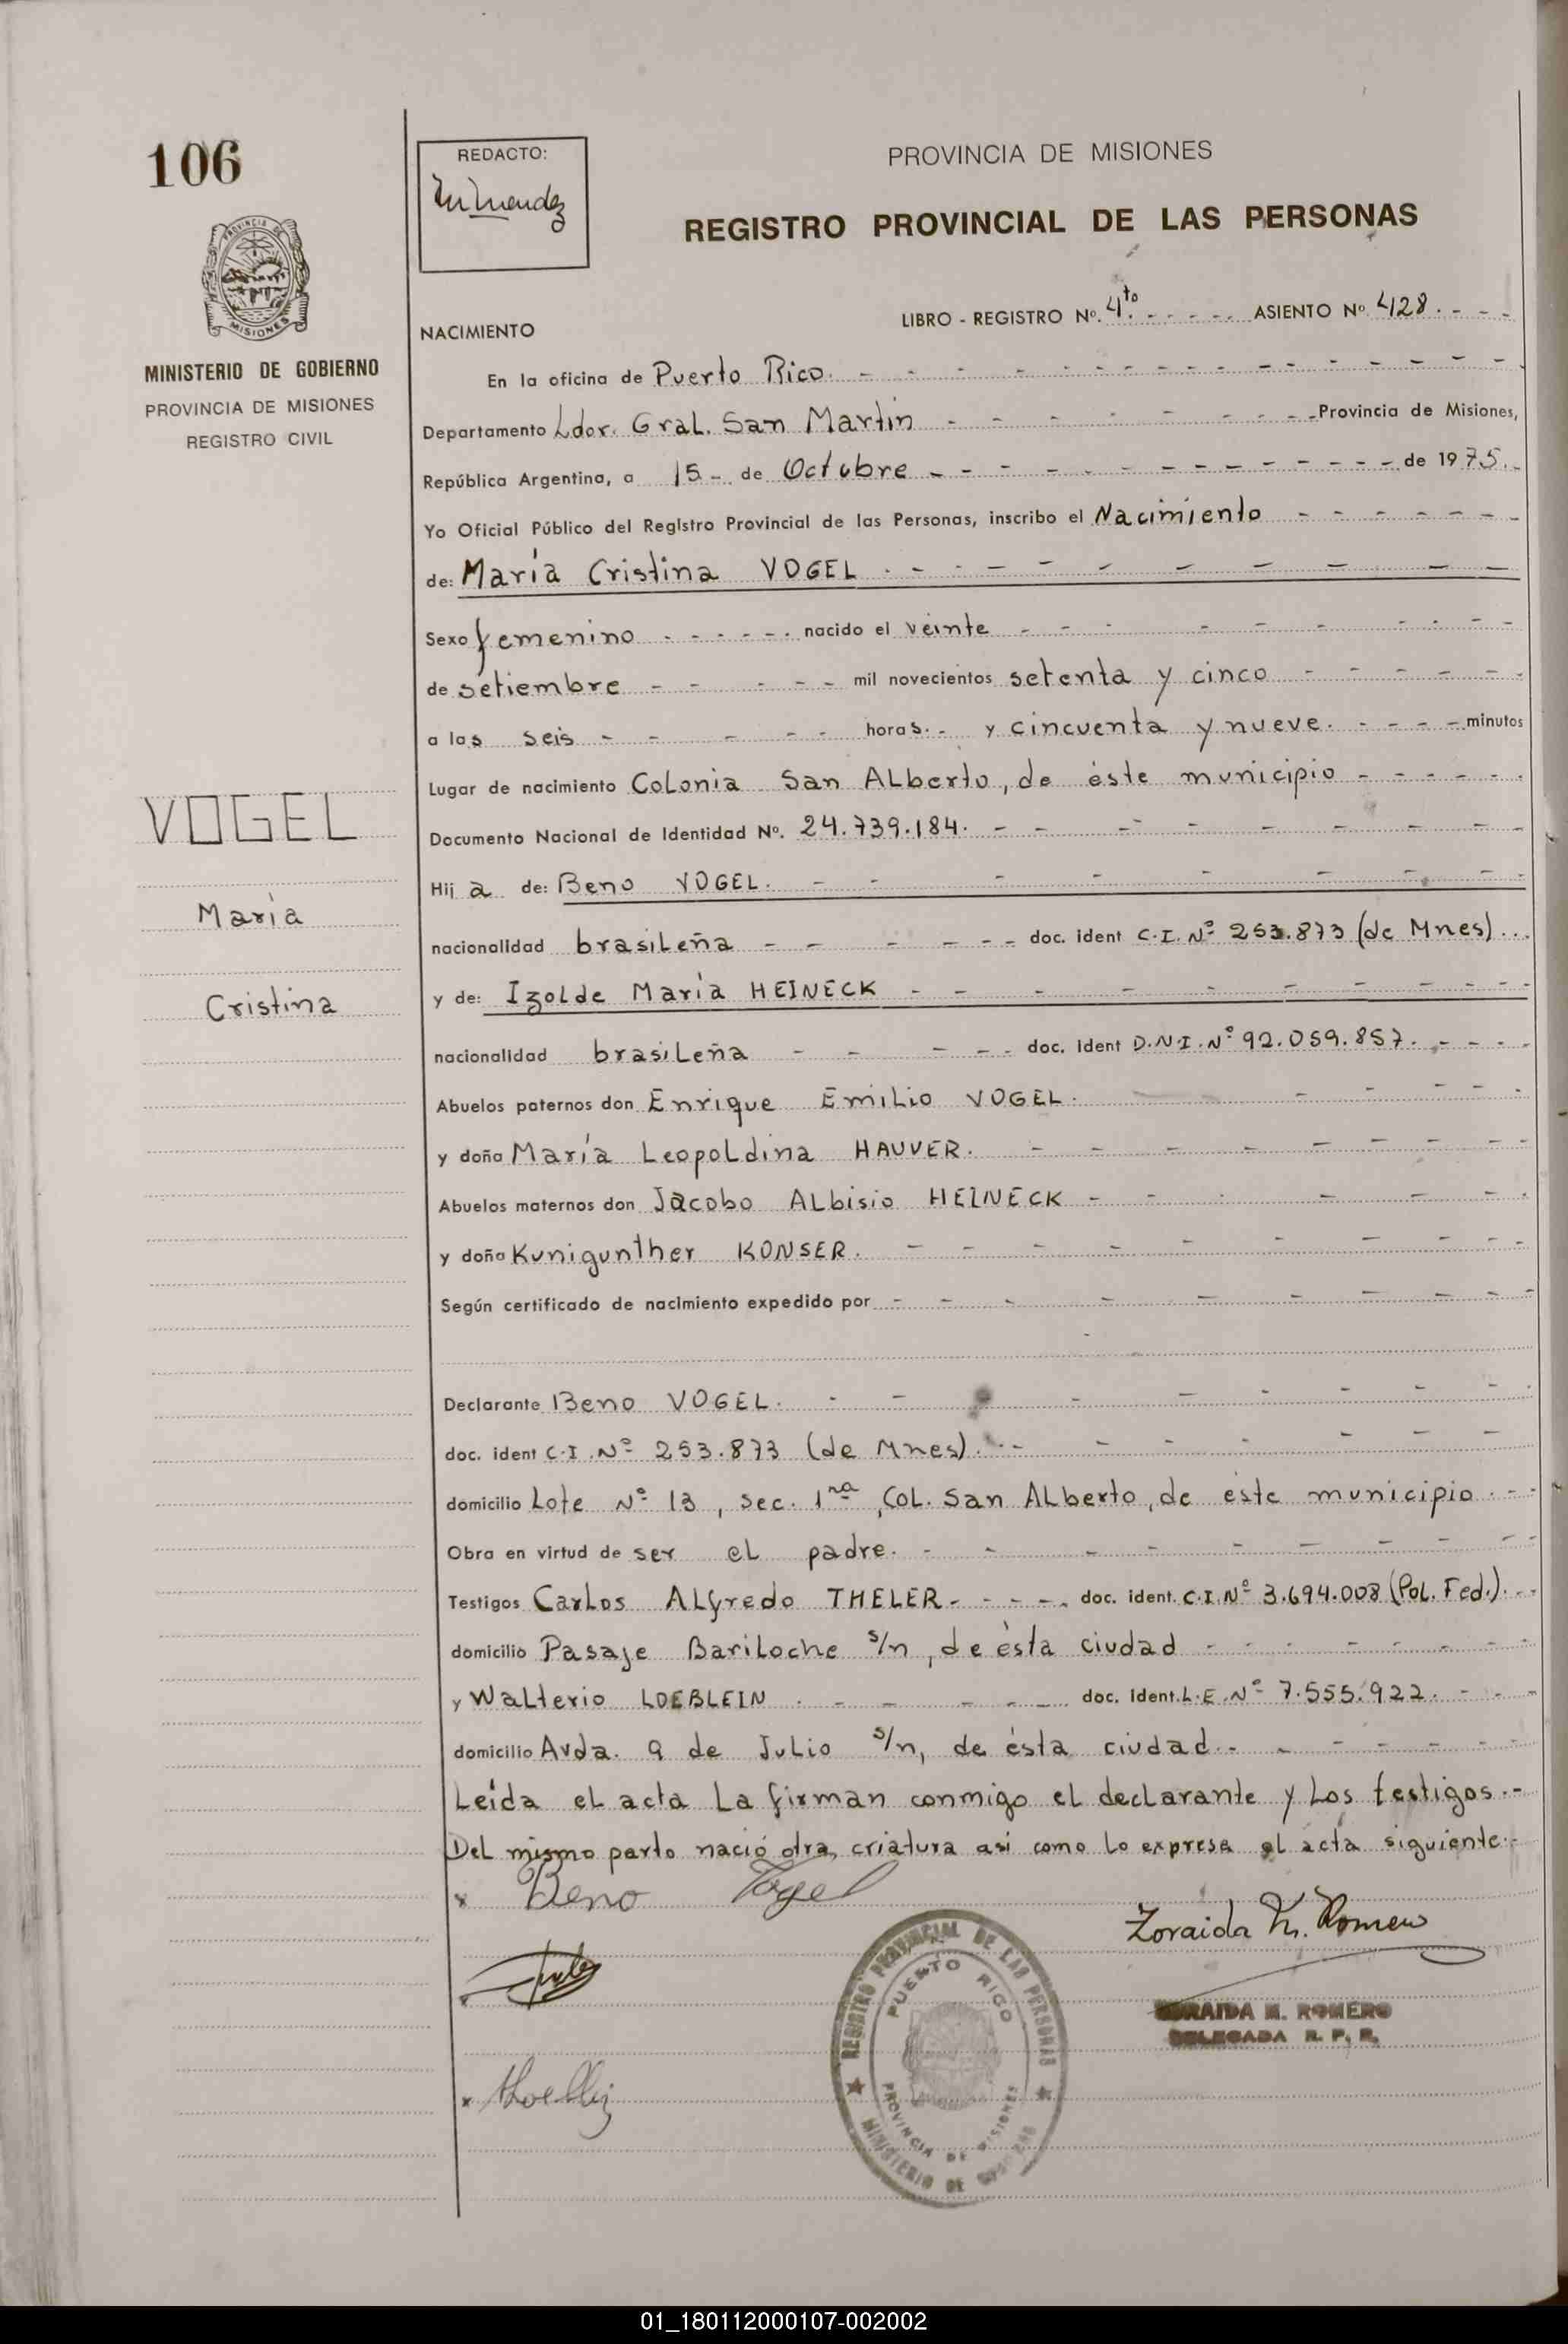 106
REDACTO:
PROVINCIA DE MISIONES
REGISTRO PROVINCIAL DE LAS PERSONAS
MINISTERIO DE GOBIERNO
PROVINCIA DE MISIONES
REGISTRO CIVIL
NACIMIENTO LIBRO - REGISTRO Nº. 4to. ASIENTO Nº 428.
En la oficina de Puerto Rico.
Departamento Ldor. Gral. San Martín Provincia de Misiones,
República Argentina, a 15 - de Octubre de 1975.
Yo Oficial Público del Registro Provincial de las Personas, inscribo el Nacimiento
de: María Cristina VOGEL
Sexo femenino nacido el veinte
de setiembre mil novecientos setenta y cinco
a las seis horas. y cincuenta y nueve. minutos
Lugar de nacimiento Colonia San Alberto, de éste municipio
Documento Nacional de Identidad Nº. 24.739.184.
Hij a de: Beno VOGEL.
nacionalidad brasileña doc. ident C.I. Nº 253.873 (de Mnes)
y de: Izolde María HEINECK
nacionalidad brasileña doc. ident D.N.I. Nº 92.059.857.
Abuelos paternos don Enrique Emilio VOGEL.
y doña María Leopoldina HAUVER.
Abuelos maternos don Jacobo Albisio HEINECK
y doña Kunigunther KONSER.
Según certificado de nacimiento expedido por
Declarante Beno VOGEL.
doc. ident C.I. Nº 253.873 (de Mnes).
domicilio Lote Nº 13, sec. 1ra, Col. San Alberto, de éste municipio.
Obra en virtud de ser el padre.
Testigos Carlos Alfredo THELER. doc. ident. C.I. Nº 3.694.008 (Pol. Fed.).
domicilio Pasaje Bariloche s/n, de ésta ciudad
y Walterio LOEBLEIN doc. ident. L.E. Nº 7.555.922.
domicilio Avda. 9 de Julio s/n, de ésta ciudad.
Leída el acta la firman conmigo el declarante y los testigos.-
Del mismo parto nació otra criatura así como lo expresa el acta siguiente.-
VOGEL
María
Cristina
x Beno Vogel
Zoraida M. Romero
ZORAIDA M. ROMERO
DELEGADA R. P. P.
REGISTRO PROVINCIAL DE LAS PERSONAS
PUERTO RICO
PROVINCIA DE MISIONES
MINISTERIO DE
01_180112000107-002002